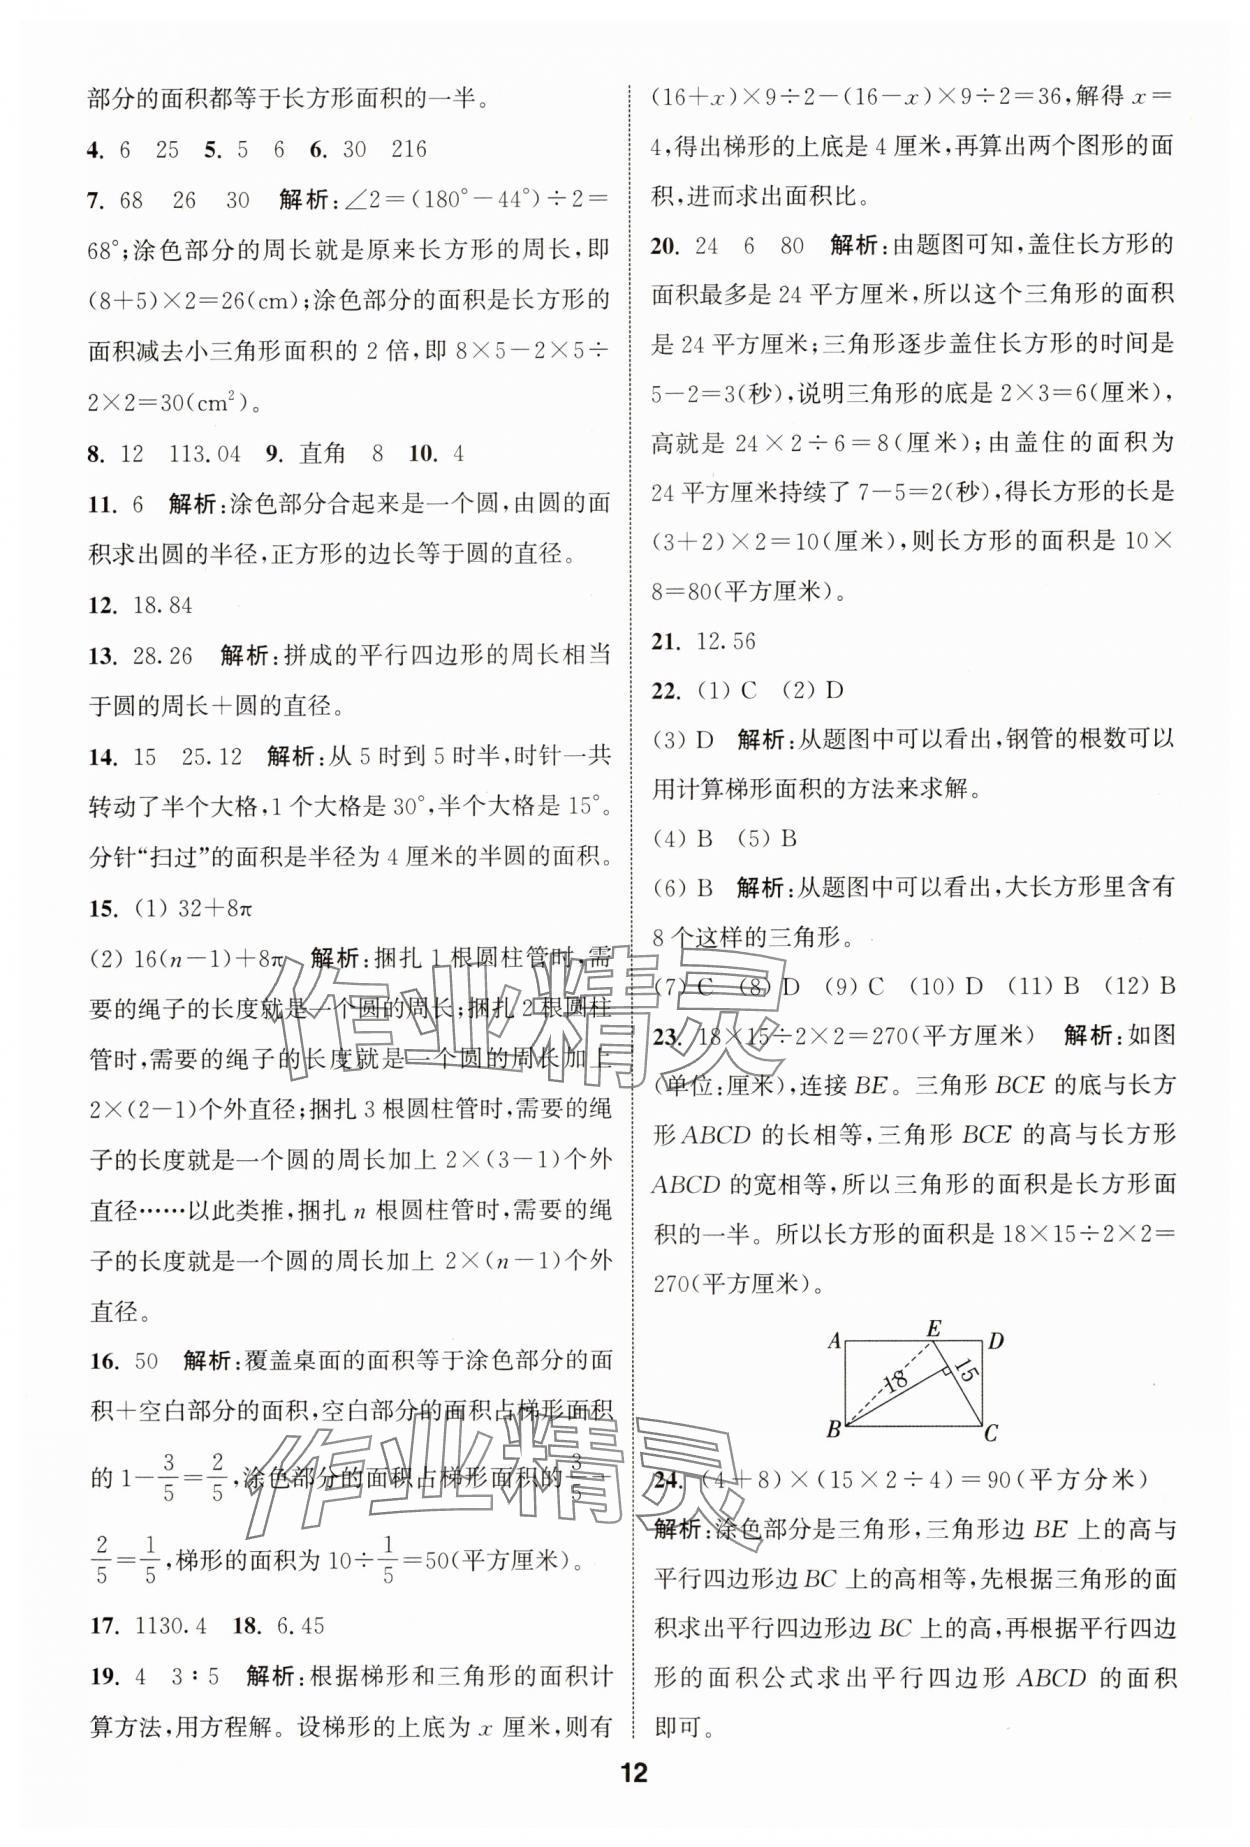 部分的面积都等于长方形面积的一半。
4. 6 25 5. 5 6 6. 30 216
7. 68 26 30 解析:∠2=(180°-44°)÷2=
68°;涂色部分的周长就是原来长方形的周长,即
(8+5)×2=26(cm);涂色部分的面积是长方形的
面积减去小三角形面积的 2 倍,即 8×5-2×5÷
2×2=30(cm²)。
8. 12 113.04 9. 直角 8 10. 4
11. 6 解析:涂色部分合起来是一个圆,由圆的面
积求出圆的半径,正方形的边长等于圆的直径。
12. 18.84
13. 28.26 解析:拼成的平行四边形的周长相当
于圆的周长+圆的直径。
14. 15 25.12 解析:从 5 时到 5 时半,时针一共
转动了半个大格,1 个大格是 30°,半个大格是 15°。
分针“扫过”的面积是半径为 4 厘米的半圆的面积。
15. (1) 32+8π
(2) 16(n-1)+8π 解析:捆扎 1 根圆柱管时,需
要的绳子的长度就是一个圆的周长;捆扎 2 根圆柱
管时,需要的绳子的长度就是一个圆的周长加上
2×(2-1)个外直径;捆扎 3 根圆柱管时,需要的绳
子的长度就是一个圆的周长加上 2×(3-1)个外
直径……以此类推,捆扎 n 根圆柱管时,需要的绳
子的长度就是一个圆的周长加上 2×(n-1)个外
直径。
16. 50 解析:覆盖桌面的面积等于涂色部分的面
积+空白部分的面积,空白部分的面积占梯形面积
的 1-3/5=2/5,涂色部分的面积占梯形面积的 3/5-
2/5=1/5,梯形的面积为 10÷1/5=50(平方厘米)。
17. 1130.4 18. 6.45
19. 4 3∶5 解析:根据梯形和三角形的面积计
算方法,用方程解。设梯形的上底为 x 厘米,则有
(16+x)×9÷2-(16-x)×9÷2=36,解得 x=
4,得出梯形的上底是 4 厘米,再算出两个图形的面
积,进而求出面积比。
20. 24 6 80 解析:由题图可知,盖住长方形的
面积最多是 24 平方厘米,所以这个三角形的面积
是 24 平方厘米;三角形逐步盖住长方形的时间是
5-2=3(秒),说明三角形的底是 2×3=6(厘米),
高就是 24×2÷6=8(厘米);由盖住的面积为
24 平方厘米持续了 7-5=2(秒),得长方形的长是
(3+2)×2=10(厘米),则长方形的面积是 10×
8=80(平方厘米)。
21. 12.56
22. (1) C (2) D
(3) D 解析:从题图中可以看出,钢管的根数可以
用计算梯形面积的方法来求解。
(4) B (5) B
(6) B 解析:从题图中可以看出,大长方形里含有
8 个这样的三角形。
(7) C (8) D (9) C (10) D (11) B (12) B
23. 18×15÷2×2=270(平方厘米) 解析:如图
(单位:厘米),连接 BE。三角形 BCE 的底与长方
形 ABCD 的长相等,三角形 BCE 的高与长方形
ABCD 的宽相等,所以三角形的面积是长方形面
积的一半。所以长方形的面积是 18×15÷2×2=
270(平方厘米)。
A E D
18 15
B C
24. (4+8)×(15×2÷4)=90(平方分米)
解析:涂色部分是三角形,三角形边 BE 上的高与
平行四边形边 BC 上的高相等,先根据三角形的面
积求出平行四边形边 BC 上的高,再根据平行四边
形的面积公式求出平行四边形 ABCD 的面积
即可。
12
作业精灵
作业精灵